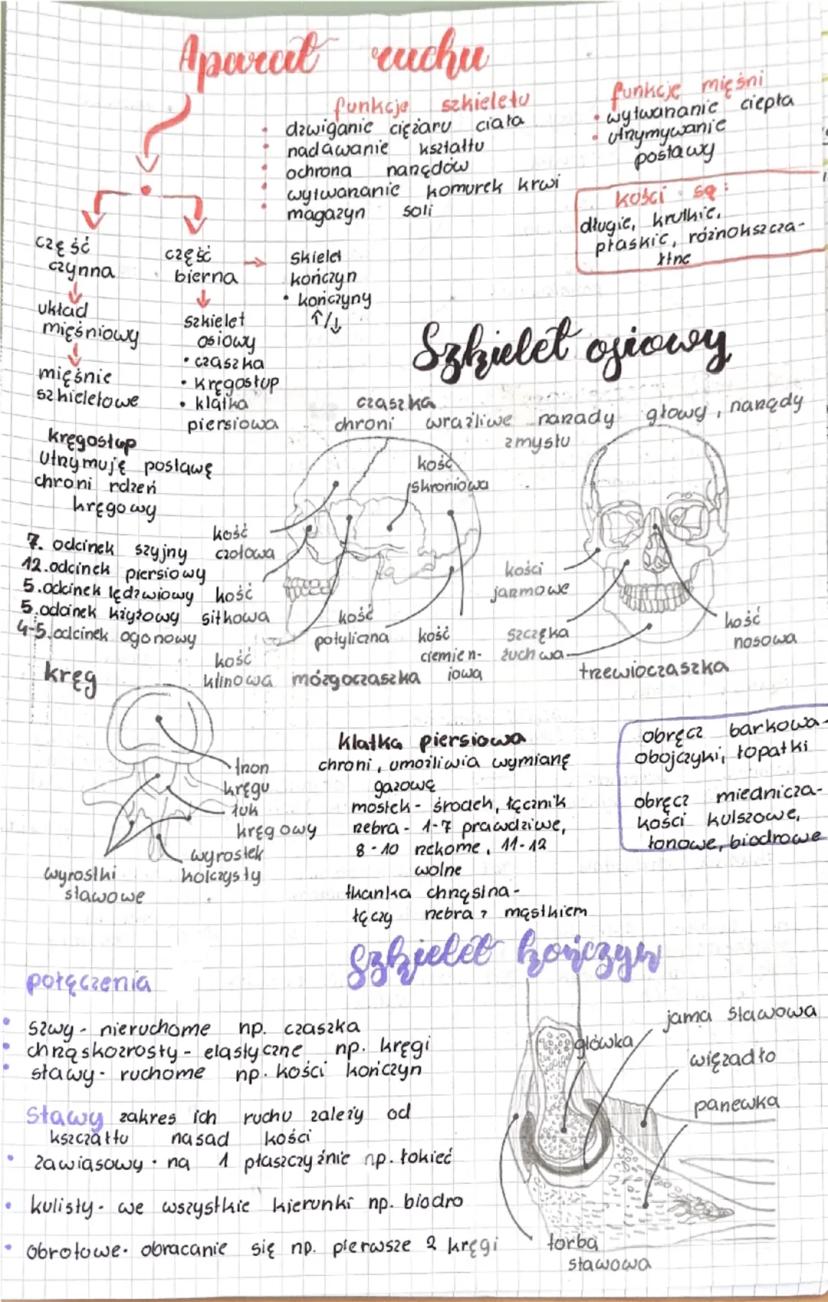 Aparat ruchu
funkcje szkieletu
• dzwiganie ciężaru ciała
• nadawanie kształtu
• ochrona narządów
• wytwarzanie komurek krwi
• magazyn soli
funkcje mięśni
• wytwarzanie ciepła
• utrzymywanie
postawy
kości są:
długie, krutkie,
płaskie, różnokszcza-
łtne
część
czynna
układ
mięśniowy
mięśnie
szkieletowe
część
bierna
szkielet
osiowy
• czaszka
• kręgosłup
• klatka
piersiowa
skielet
kończyn
• kończyny
↑/↓
Szkielet osiowy
czaszka
chroni wrażliwe narządy głowy, narządy
zmysłu
kręgosłup
utrzymuję postawę
chroni rdzeń
kręgowy
7. odcinek szyjny
12. odcinek piersiowy
5. odcinek lędzwiowy
5. odcinek krzyżowy
4-5. odcinek ogonowy
kość
skroniowa
kość
czołowa
kość
sitkowa
kość
klinowa
kość
potyliczna
kość
ciemien-
iowa
mózgoczaszka
kości
jarzmowe
szczęka
żuchwa
kość
nosowa
trzewioczaszka
kręg
trzon
kręgu
łuk
kręgowy
wyrostek
kolczysty
wyrostki
stawowe
klatka piersiowa
chroni, umożliwia wymianę
gazową
mostek - środek, łącznik
żebra - 1-7 prawdziwe,
8-10 rzekome, 11-12
wolne
tkanka chrzęstna -
łączy żebra z mostkiem
obręcz barkowa -
obojczyki, łopatki
obręcz miednicza-
kości kulszowe,
łonowe, biodrowe
Szkielet kończyn
połączenia
• szwy - nieruchome np. czaszka
• chrząskozrosty - elastyczne np. kręgi
• stawy - ruchome np. kości kończyn
Stawy zakres ich ruchu zależy od
kszczałtu nasad kości
• zawiasowy - na 1 płaszczyźnie np. łokieć
• kulisty - we wszystkie kierunki np. biodro
• obrotowe - obracanie się np. pierwsze 2 kręgi
główka
jama stawowa
więzadło
panewka
torba
stawowa